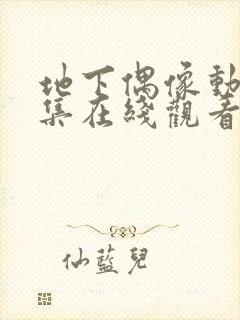 地下偶像動
集在綫觀看
仙藍兒